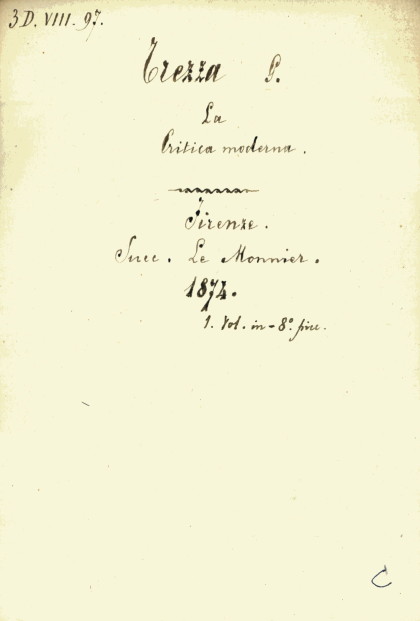 3 D. VIII. 97.
Trezza G.
La
Critica moderna.
Firenze.
Succ. Le Monnier.
1874.
1. Vol. in-8° picc.
C